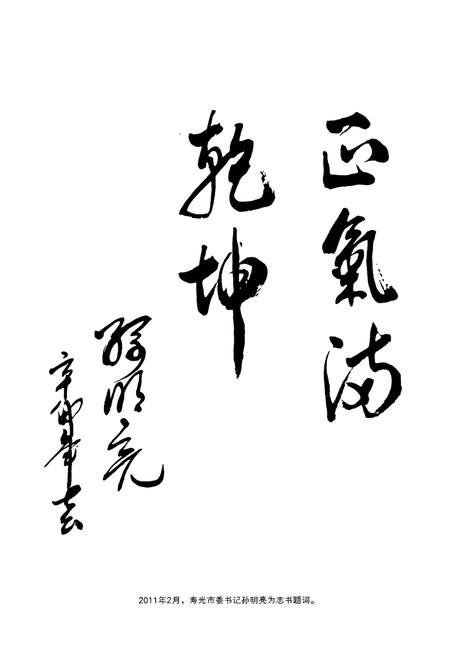 正氣滿
乾坤
孫明亮
辛卯年春
2011年2月，寿光市委书记孙明亮为志书题词。